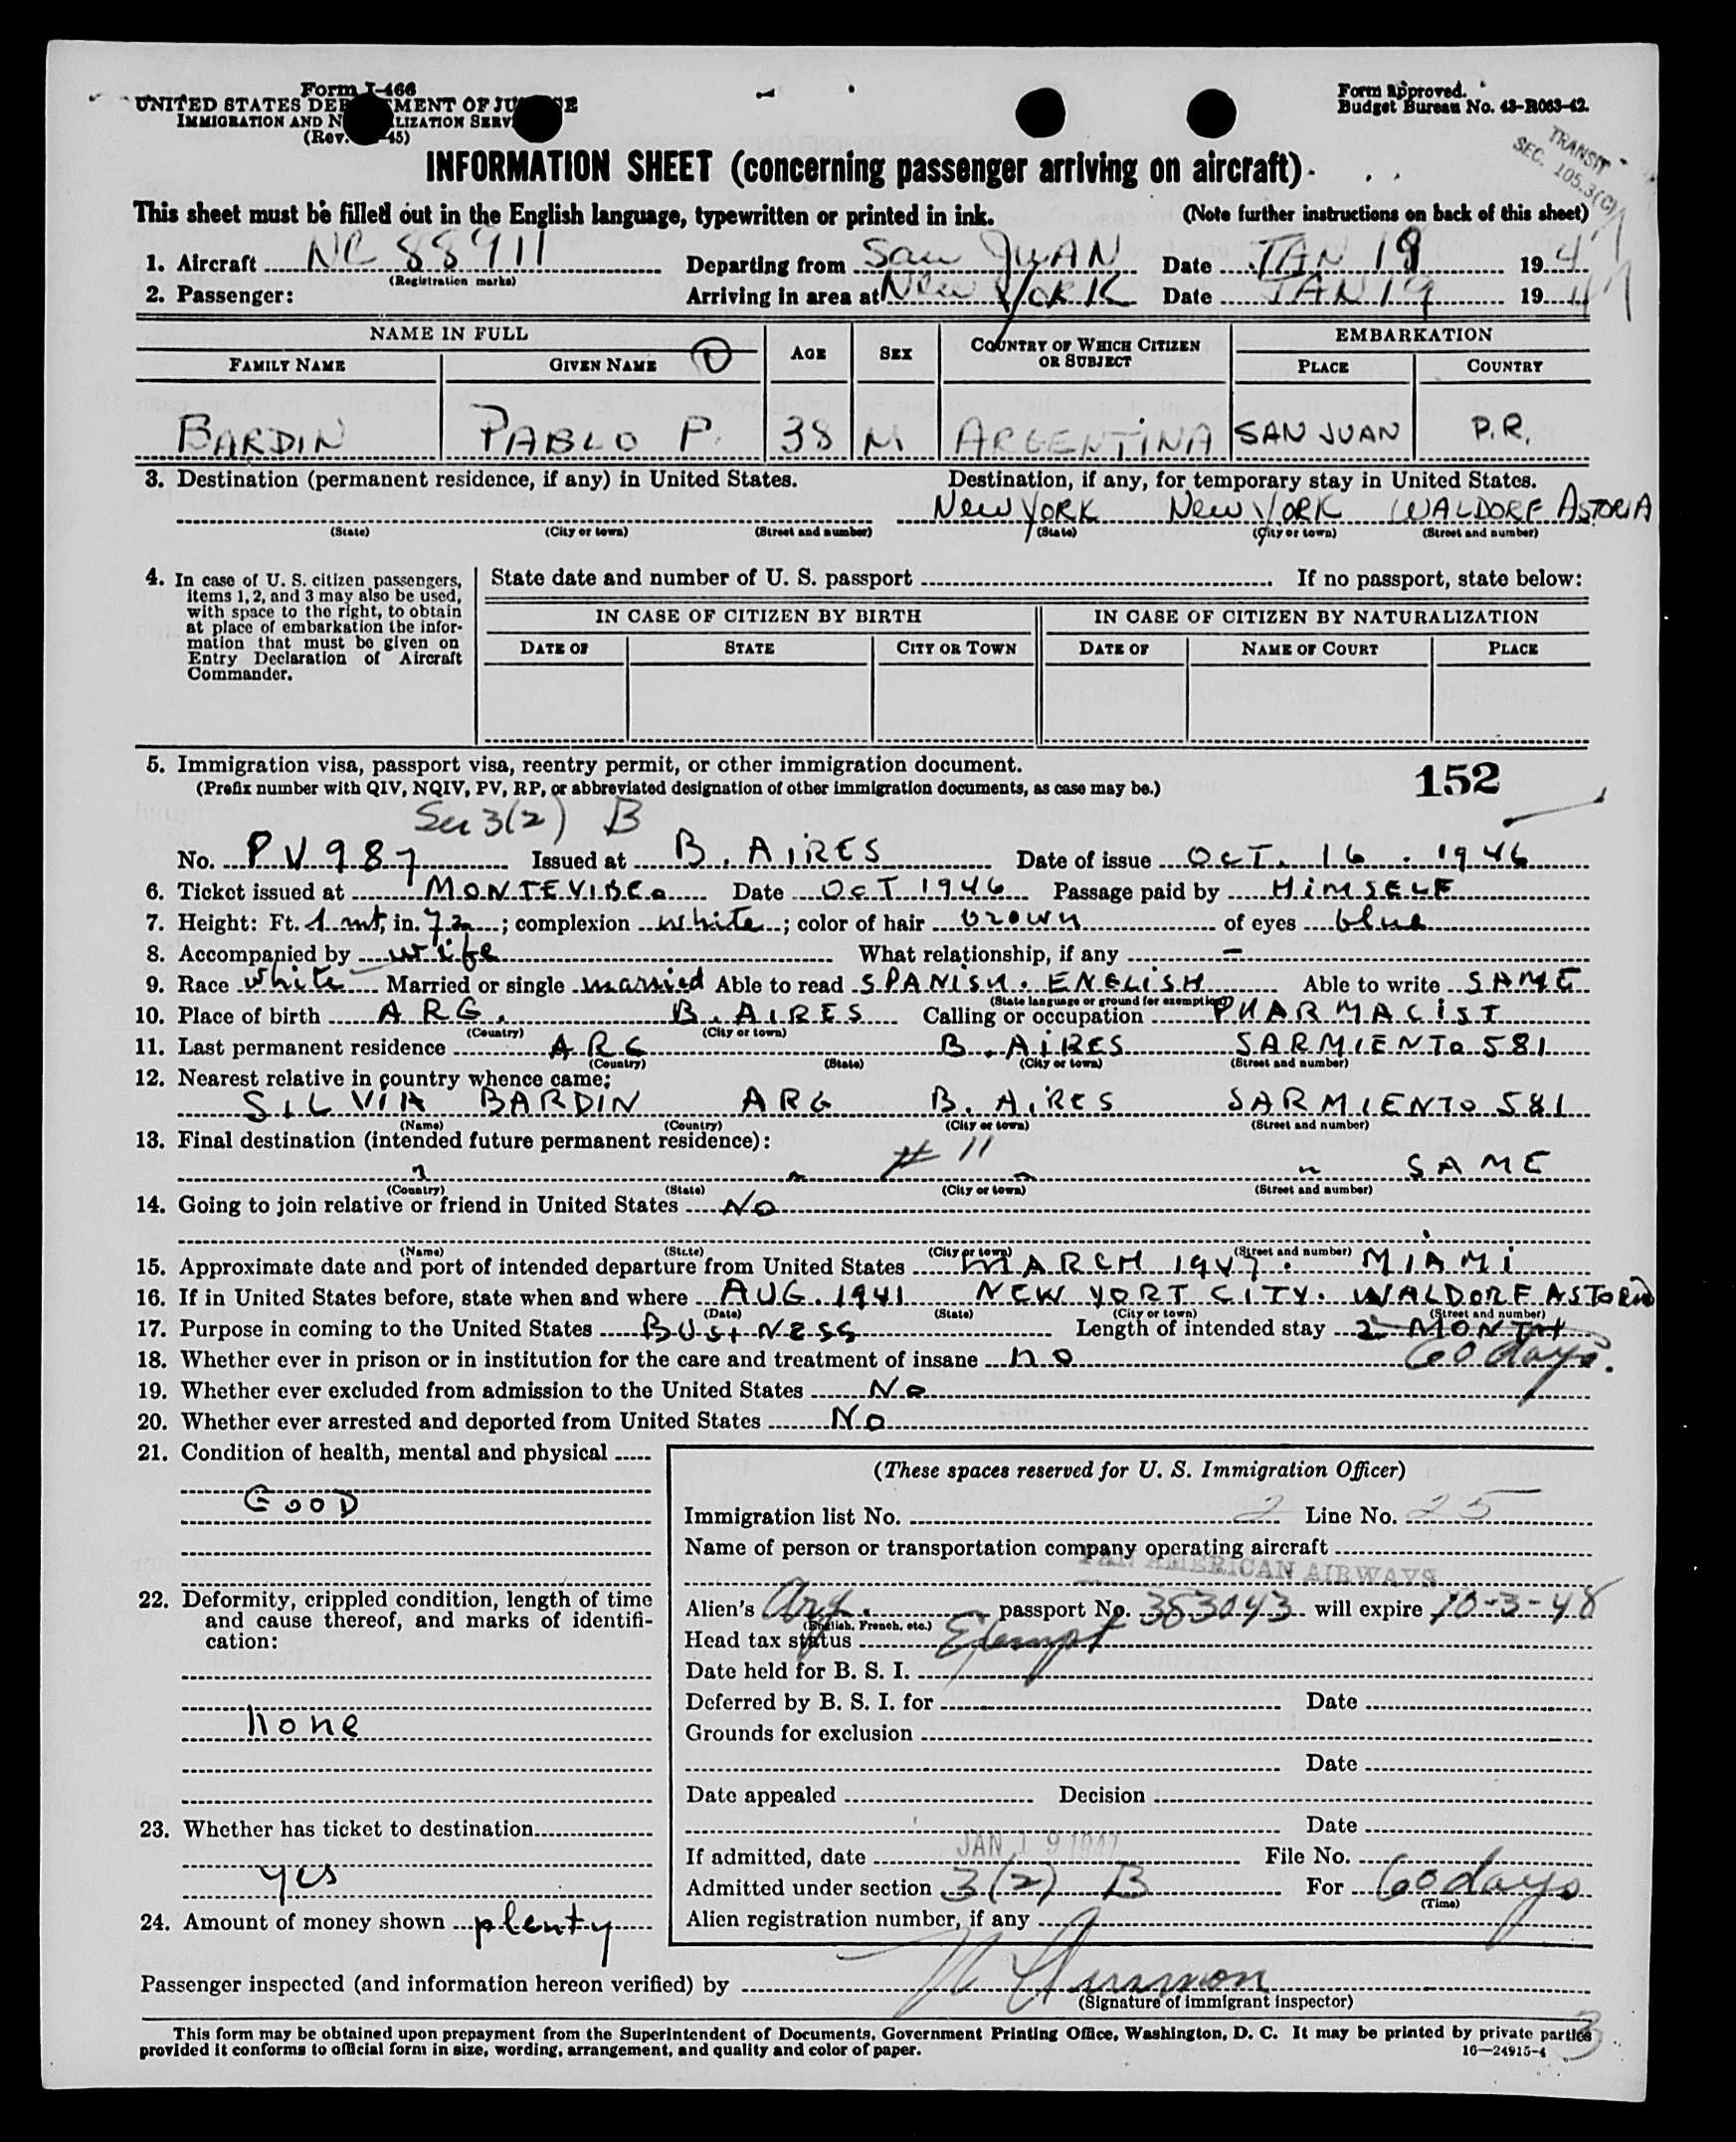 Form I-466
UNITED STATES DEPARTMENT OF JUSTICE
IMMIGRATION AND NATURALIZATION SERVICE
(Rev. 45)
Form approved.
Budget Bureau No. 43-R063-42.
TRANSIT
SEC. 105.3(C)
INFORMATION SHEET (concerning passenger arriving on aircraft)
This sheet must be filled out in the English language, typewritten or printed in ink. (Note further instructions on back of this sheet)
1. Aircraft NC 88911 Departing from San JUAN Date JAN 19 1947
(Registration marks)
2. Passenger: Arriving in area at New York Date JAN 19 1947
NAME IN FULL AGE SEX COUNTRY OF WHICH CITIZEN OR SUBJECT EMBARKATION
FAMILY NAME GIVEN NAME PLACE COUNTRY
BARDIN PABLO P. 38 M ARGENTINA SAN JUAN P.R.
3. Destination (permanent residence, if any) in United States. Destination, if any, for temporary stay in United States.
New York New York WALDORF ASTORIA
(State) (City or town) (Street and number) (State) (City or town) (Street and number)
4. In case of U. S. citizen passengers, items 1, 2, and 3 may also be used, with space to the right, to obtain at place of embarkation the information that must be given on Entry Declaration of Aircraft Commander.
State date and number of U. S. passport . If no passport, state below:
IN CASE OF CITIZEN BY BIRTH IN CASE OF CITIZEN BY NATURALIZATION
DATE OF STATE CITY OR TOWN DATE OF NAME OF COURT PLACE
5. Immigration visa, passport visa, reentry permit, or other immigration document.
(Prefix number with QIV, NQIV, PV, RP, or abbreviated designation of other immigration documents, as case may be.)
152
Sec 3(2) B
No. PV 987 Issued at B. AIRES Date of issue OCT. 16. 1946
6. Ticket issued at MONTEVIDEO Date OCT 1946 Passage paid by HIMSELF
7. Height: Ft. 1 mt, in. 72; complexion white; color of hair brown of eyes blue
8. Accompanied by wife What relationship, if any -
9. Race white Married or single married Able to read SPANISH. ENGLISH Able to write SAME
(State language or ground for exemption)
10. Place of birth ARG. B. AIRES Calling or occupation PHARMACIST
(Country) (City or town)
11. Last permanent residence ARG B. AIRES SARMIENTO 581
(Country) (State) (City or town) (Street and number)
12. Nearest relative in country whence came:
SILVIA BARDIN ARG B. AIRES SARMIENTO 581
(Name) (Country) (City or town) (Street and number)
13. Final destination (intended future permanent residence):
# 11 SAME
(Country) (State) (City or town) (Street and number)
14. Going to join relative or friend in United States NO
(Name) (State) (City or town) (Street and number)
15. Approximate date and port of intended departure from United States MARCH 1947. MIAMI
16. If in United States before, state when and where AUG. 1941 NEW YORT CITY. WALDORF ASTORIA
(Date) (State) (City or town) (Street and number)
17. Purpose in coming to the United States BUSINESS Length of intended stay 2 MONTH
60 days.
18. Whether ever in prison or in institution for the care and treatment of insane no
19. Whether ever excluded from admission to the United States No
20. Whether ever arrested and deported from United States No
21. Condition of health, mental and physical
GOOD
22. Deformity, crippled condition, length of time and cause thereof, and marks of identification:
none
23. Whether has ticket to destination
yes
24. Amount of money shown plenty
(These spaces reserved for U. S. Immigration Officer)
Immigration list No. 2 Line No. 25
Name of person or transportation company operating aircraft
PAN AMERICAN AIRWAYS
Alien's Arg. passport No. 383043 will expire 10-3-48
(English, French, etc.)
Head tax status Exempt
Date held for B. S. I.
Deferred by B. S. I. for Date
Grounds for exclusion
Date
Date appealed Decision
Date
If admitted, date JAN 19 1947 File No.
Admitted under section 3(2) B For 60 days
(Time)
Alien registration number, if any
Passenger inspected (and information hereon verified) by
(Signature of immigrant inspector)
This form may be obtained upon prepayment from the Superintendent of Documents, Government Printing Office, Washington, D. C. It may be printed by private parties
provided it conforms to official form in size, wording, arrangement, and quality and color of paper. 16—24915-4
3